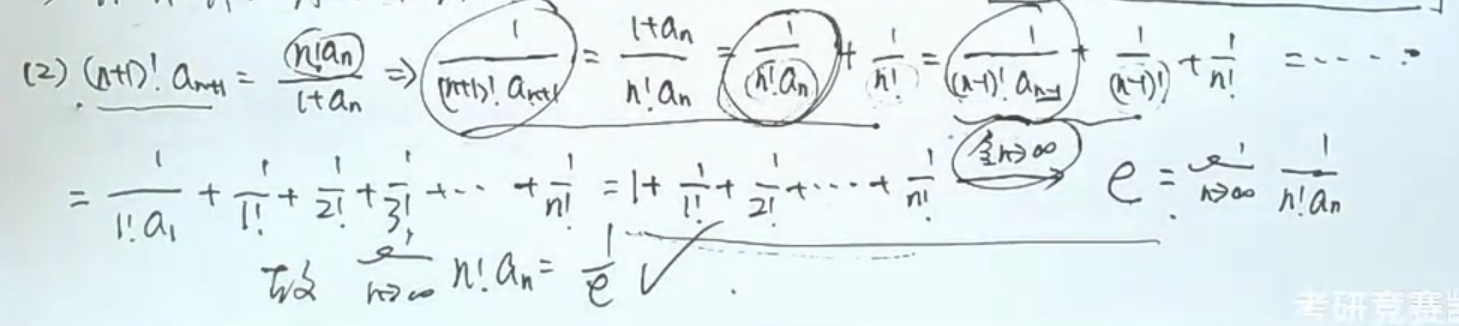 (2) (n+1)! aₙ₊₁ = n!aₙ/(1+aₙ) ⇒ 1/((n+1)! aₙ₊₁) = (1+aₙ)/(n! aₙ) = 1/(n! aₙ) + 1/n! = 1/((n-1)! aₙ₋₁) + 1/(n-1)! + 1/n! = ⋯⋯
= 1/(1! a₁) + 1/1! + 1/2! + 1/3! + ⋯ + 1/n! = 1 + 1/1! + 1/2! + ⋯ + 1/n! 令n→∞ → e = lim n→∞ 1/(n! aₙ)
故 lim n→∞ n! aₙ = 1/e ✓
考研竞赛